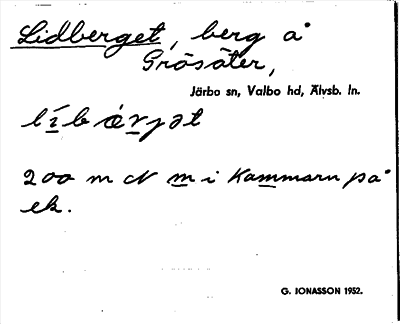 Lidberget, berg å
Grösäter,
Järbo sn, Valbo hd, Älvsb. ln.
200 m N m i Kammarn på
ek.
G. JONASSON 1952.